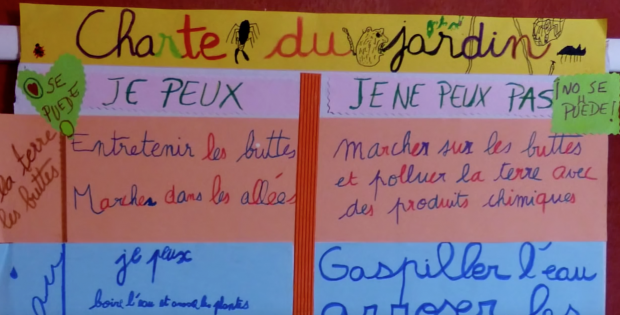 Charte du jardin
SE PUEDE
JE PEUX
JE NE PEUX PAS
¡NO SE PUEDE!
la terre
les buttes
Entretenir les buttes
Marcher dans les allées
marcher sur les buttes
et polluer la terre avec
des produits chimiques
je peux
boire l'eau et arroser les plantes
Gaspiller l'eau
arroser les